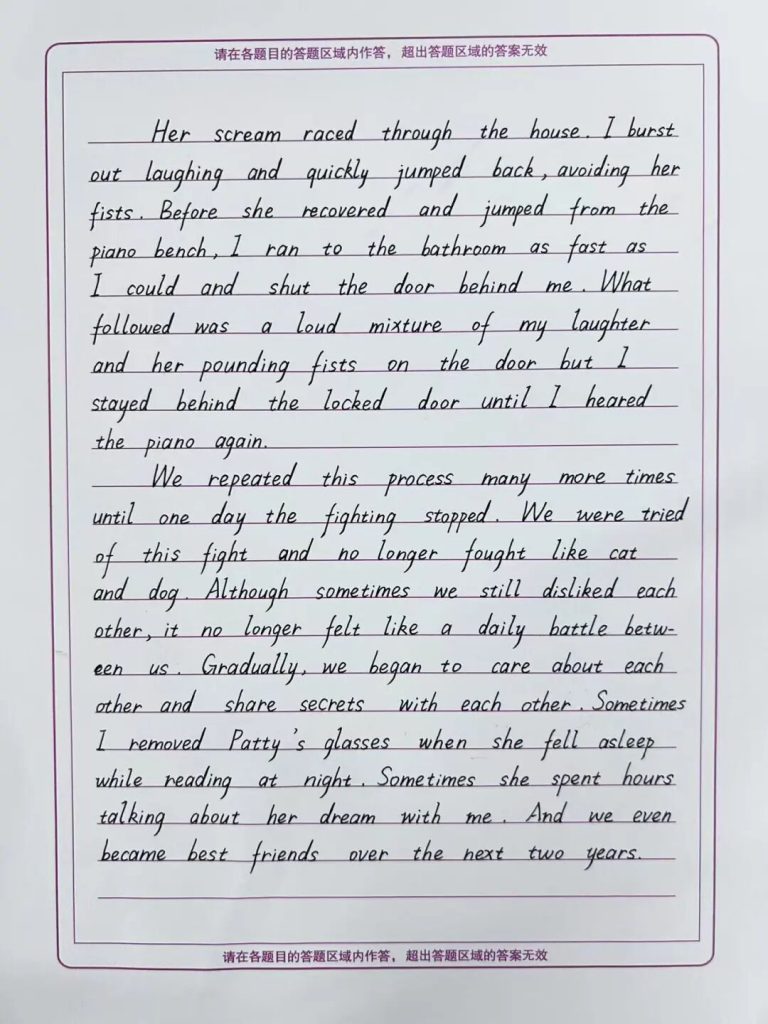 请在各题目的答题区域内作答，超出答题区域的答案无效
Her scream raced through the house. I burst
out laughing and quickly jumped back, avoiding her
fists. Before she recovered and jumped from the
piano bench, I ran to the bathroom as fast as
I could and shut the door behind me. What
followed was a loud mixture of my laughter
and her pounding fists on the door but I
stayed behind the locked door until I heared
the piano again.
We repeated this process many more times
until one day the fighting stopped. We were tried
of this fight and no longer fought like cat
and dog. Although sometimes we still disliked each
other, it no longer felt like a daily battle betw-
een us. Gradually, we began to care about each
other and share secrets with each other. Sometimes
I removed Patty's glasses when she fell asleep
while reading at night. Sometimes she spent hours
talking about her dream with me. And we even
became best friends over the next two years.
请在各题目的答题区域内作答，超出答题区域的答案无效